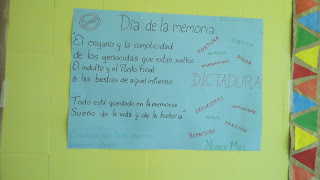 Día de la memoria
"El engaño y la complicidad
de los genocidas que están sueltos
El indulto y el Punto Final
a las bestias de aquel infierno
Todo está guardado en la memoria
Sueño de la vida y de la historia"
TORTURA
DICTADURA
SECUESTROS
REPRESIÓN
Nunca Más